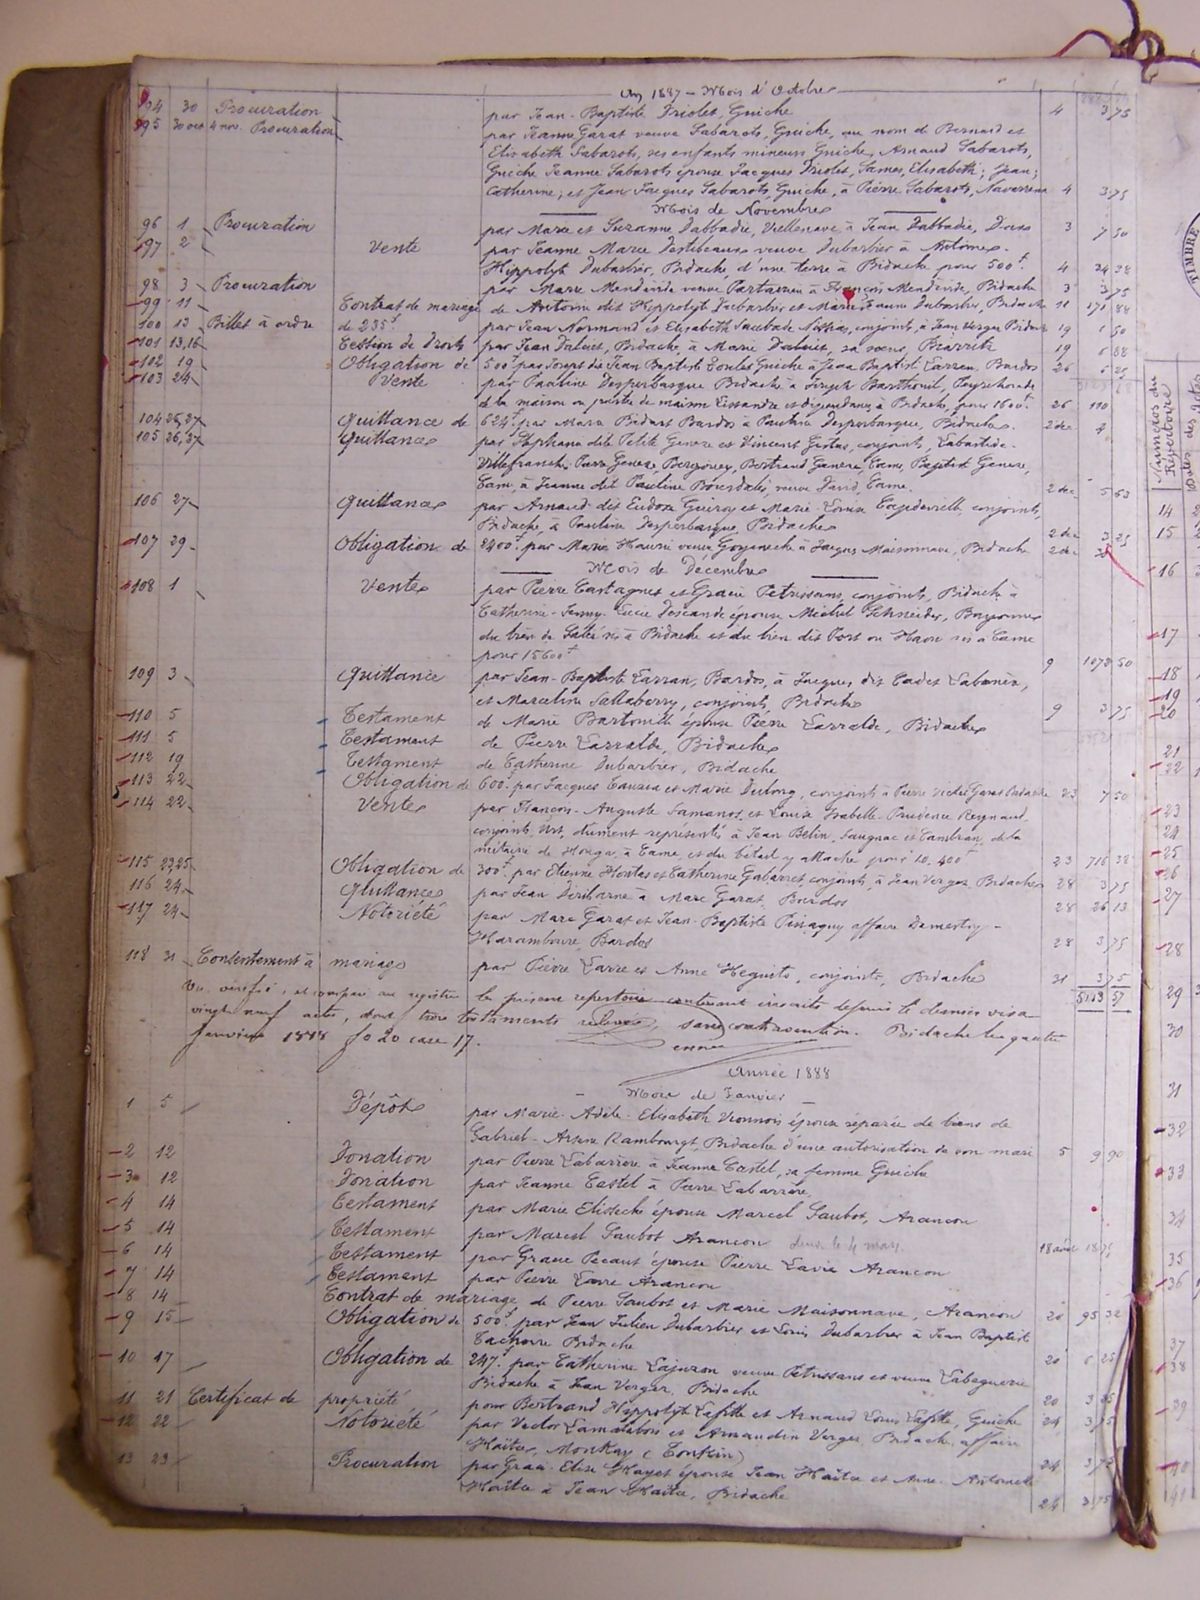 An 1887 - Mois d'Octobre
94 30 Procuration par Jean-Baptiste Driolet, Guiche 4 3,75
95 30 oct 4 nov. Procuration par Jeanne Garat veuve Sabarots, Guiche, au nom de Bernard et
Elisabeth Sabarots, ses enfants mineurs Guiche, Arnaud Sabarots,
Guiche Jeanne Sabarots épouse Jacques Driolet, Sames, Elisabeth; Jean;
Catherine; et Jean Jacques Sabarots, Guiche, à Pierre Sabarots, Navarrenx 4 3,75
Mois de Novembre
96 1 Procuration par Marie et Suzanne Dabbadie, Viellenave à Jean Dabbadie, 3 7 50
97 2 Vente par Jeanne Marie veuve Dubarbier à Antoine-
Hippolyte Dubarbier, Bidache, d'une terre à Bidache pour 500f. 4 24 38
98 3 Procuration par Marie Mendivide veuve à François Mendivide, Bidache 3 3,75
99 11 Contrat de mariage de Antoine dit Hippolyte Dubarbier et Marie Jeanne Dubarbier, Bidache 11 171 88
100 13 Billet à ordre de 235f par Jean Normand et Elisabeth conjoints, à Jean Verges Bidache 19 1 50
101 13,16 Cession de Droits par Jean Bidache, à Marie sa sœur, Biarritz 19 6 88
102 19 Obligation de 500f par Joseph dit Jean Baptiste Guiche à Jean Baptiste Larran, Bardos 26 6 25
103 24 Vente par Pauline Desperbasque Bidache à Joseph Barthouil, Peyrehorade
de la maison ou partie de maison et dépendances à Bidache, pour 1600f. 26 110
104 25,27 Quittance de 624f par Marie Bidart Bardos à Pauline Desperbasque, Bidache. 2 dec 4
105 26,27 Quittance par Stéphanie dite Petite Genese et Vincent conjoints, Labastide-
Villefranche, Pierre Genese, Bergouey, Bertrand Genese, Came, Baptiste Genese,
Came, à Jeanne dit Pauline veuve David, Came. 2 dec 5 63
106 27 Quittance par Arnaud dit Eudoxe et Marie-Louise Capdevielle, conjoints,
Bidache, à Pauline Desperbasque, Bidache 2 dec 3 25
107 29 Obligation de 2400f par Marie veuve Goyeneche à Jacques Maisonnave, Bidache 2 dec
Mois de Décembre
108 1 Vente par Pierre Castagnet et Gracie Petrissans, conjoints, Bidache à
Catherine-Fanny-Lucie épouse Michel Schneider, Bayonne
du bien de sis à Bidache et du bien dit Port ou sis à Came
pour 15600f 9 1078 50
109 3 Quittance par Jean-Baptiste Larran, Bardos, à Jacques dit Cadet
et Marceline Sallaberry, conjoints, Bidache 9 3,75
110 5 Testament de Marie Barthouilh épouse Pierre Larralde, Bidache
111 5 Testament de Pierre Larralde, Bidache
112 19 Testament de Catherine Dubarbier, Bidache
113 22 Obligation de 600f. par Jacques et Marie Dulong, conjoints à Pierre Garat Bidache 23 7 50
114 22 Vente par François-Auguste Samanos et Louise Isabelle-Prudence Reynaud
conjoints, dûment représentés à Jean Belin, Saugnac et Cambran, de la
métairie de à Came, et du bétail y attaché pour 10,400f 23 716 38
115 23,25 Obligation de 300f. par Etienne Hontas et Catherine Gabarret, conjoints, à Jean Verges, Bidache 28 3,75
116 24 Quittance par Jean à Marc Garat, Bardos 28 26 13
117 24 Notoriété par Marc Garat et Jean-Baptiste affaire
Haramboure, Bardos 28 3,75
118 31 Consentement à mariage par Pierre Larre et Anne conjoints, Bidache 31 3,75
Vu, vérifié, et comparé au registre le présent répertoire contenant inscrits depuis le dernier visa
vingt neuf actes, dont trois testaments relevés, sans contravention. Bidache le quatre
Janvier 1888 fo 20 case 17.
Année 1888
Mois de Janvier
1 5 Dépôt par Marie-Adèle-Elisabeth épouse séparée de biens de
Gabriel-Arsène Rambourgt, Bidache d'une autorisation de son mari 5 9 90
2 12 Donation par Pierre Labarrère à Jeanne Castel, sa femme Guiche
3 12 Donation par Jeanne Castel à Pierre Labarrère
4 14 Testament par Marie épouse Marcel Saubot, Arancou
5 14 Testament par Marcel Saubot Arancou 18 avril 18 75
6 14 Testament par Gracie Pecaut épouse Pierre Lavie Arancou
7 14 Testament par Pierre Lavie Arancou
8 14 Contrat de mariage de Pierre Saubot et Marie Maisonnave, Arancou 20 95 32
9 15 Obligation de 500f par Jean Julien Dubarbier et Louis Dubarbier à Jean Baptiste
Bidache 20 6 25
10 17 Obligation de 247f. par Catherine veuve Petrissans et veuve Labeguerie
Bidache à Jean Verges, Bidache 20
11 21 Certificat de propriété pour Bertrand Hippolyte Lafitte et Arnaud Louis Lafitte, Guiche 24 3,75
12 22 Notoriété par Victor et Arnaudin Verges Bidache affaire
Haïtce, Monkay (Tonkin) 24 3,75
13 23 Procuration par Elise Hayet épouse Jean Haïtce et Anne-Antoinette
Haïtce à Jean Haïtce, Bidache 24 3,75
Numéros du
Répertoire
Dates des Actes
TIMBRE
14
15
16
17
18
19
20
21
22
23
24
25
26
27
28
29
30
31
32
33
34
35
36
37
38
39
40
41